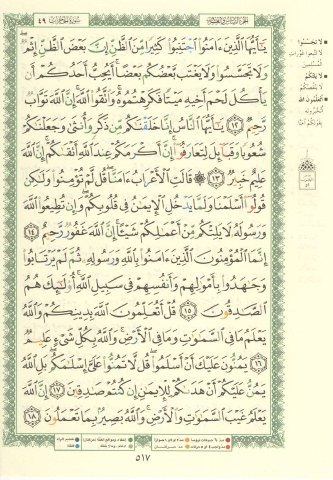 سورة الحجرات ٤٩
الجزء السادس والعشرون
يَـٰٓأَيُّهَا ٱلَّذِينَ ءَامَنُوا۟ ٱجْتَنِبُوا۟ كَثِيرًا مِّنَ ٱلظَّنِّ إِنَّ بَعْضَ ٱلظَّنِّ إِثْمٌ
وَلَا تَجَسَّسُوا۟ وَلَا يَغْتَب بَّعْضُكُم بَعْضًا أَيُحِبُّ أَحَدُكُمْ أَن
يَأْكُلَ لَحْمَ أَخِيهِ مَيْتًا فَكَرِهْتُمُوهُ وَٱتَّقُوا۟ ٱللَّهَ إِنَّ ٱللَّهَ تَوَّابٌ
رَّحِيمٌ ١٢ يَـٰٓأَيُّهَا ٱلنَّاسُ إِنَّا خَلَقْنَـٰكُم مِّن ذَكَرٍ وَأُنثَىٰ وَجَعَلْنَـٰكُمْ
شُعُوبًا وَقَبَآئِلَ لِتَعَارَفُوٓا۟ إِنَّ أَكْرَمَكُمْ عِندَ ٱللَّهِ أَتْقَىٰكُمْ إِنَّ ٱللَّهَ
عَلِيمٌ خَبِيرٌ ١٣ قَالَتِ ٱلْأَعْرَابُ ءَامَنَّا قُل لَّمْ تُؤْمِنُوا۟ وَلَـٰكِن
قُولُوٓا۟ أَسْلَمْنَا وَلَمَّا يَدْخُلِ ٱلْإِيمَـٰنُ فِى قُلُوبِكُمْ وَإِن تُطِيعُوا۟ ٱللَّهَ
وَرَسُولَهُۥ لَا يَلِتْكُم مِّنْ أَعْمَـٰلِكُمْ شَيْـًٔا إِنَّ ٱللَّهَ غَفُورٌ رَّحِيمٌ ١٤
إِنَّمَا ٱلْمُؤْمِنُونَ ٱلَّذِينَ ءَامَنُوا۟ بِٱللَّهِ وَرَسُولِهِۦ ثُمَّ لَمْ يَرْتَابُوا۟
وَجَـٰهَدُوا۟ بِأَمْوَٰلِهِمْ وَأَنفُسِهِمْ فِى سَبِيلِ ٱللَّهِ أُو۟لَـٰٓئِكَ هُمُ
ٱلصَّـٰدِقُونَ ١٥ قُلْ أَتُعَلِّمُونَ ٱللَّهَ بِدِينِكُمْ وَٱللَّهُ
يَعْلَمُ مَا فِى ٱلسَّمَـٰوَٰتِ وَمَا فِى ٱلْأَرْضِ وَٱللَّهُ بِكُلِّ شَىْءٍ عَلِيمٌ
١٦ يَمُنُّونَ عَلَيْكَ أَنْ أَسْلَمُوا۟ قُل لَّا تَمُنُّوا۟ عَلَىَّ إِسْلَـٰمَكُم بَلِ ٱللَّهُ
يَمُنُّ عَلَيْكُمْ أَنْ هَدَىٰكُمْ لِلْإِيمَـٰنِ إِن كُنتُمْ صَـٰدِقِينَ ١٧ إِنَّ ٱللَّهَ
يَعْلَمُ غَيْبَ ٱلسَّمَـٰوَٰتِ وَٱلْأَرْضِ وَٱللَّهُ بَصِيرٌۢ بِمَا تَعْمَلُونَ ١٨
لا تجسسوا
لا يلتكم
أتعلمون الله
٥١٧